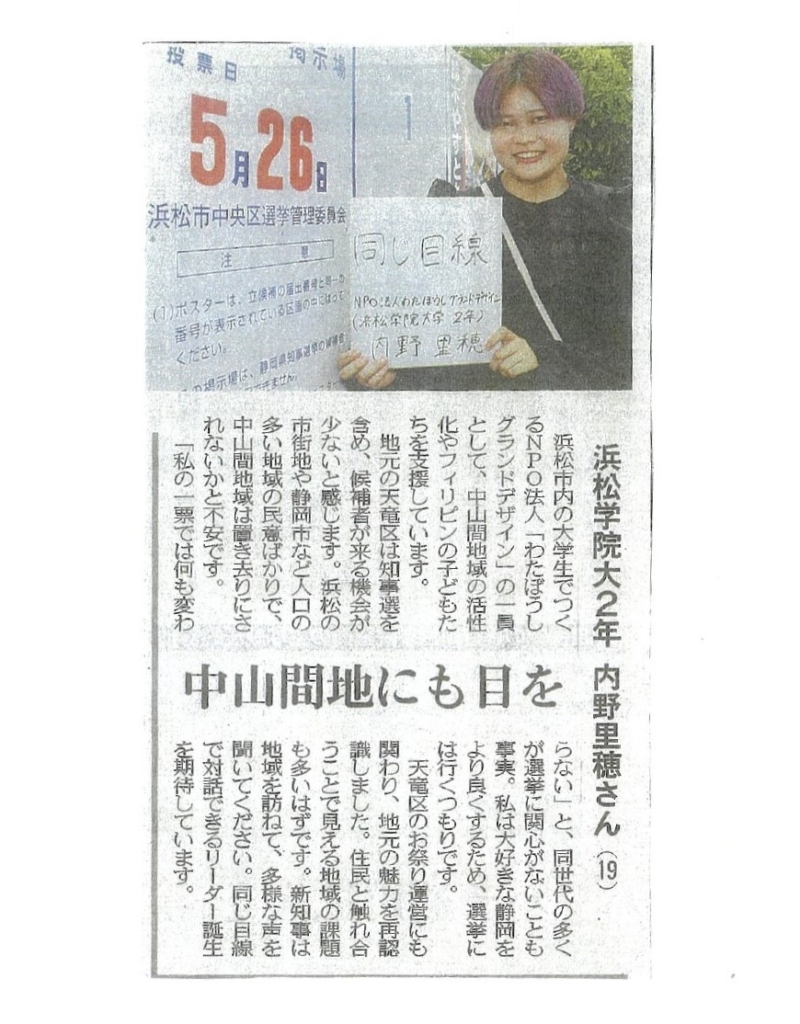 投票日
掲示場
5月26日
浜松市中央区選挙管理委員会
注意
1
(1)ポスターは、立候補の届出番号と同一の
番号が表示されている区画の中にはって
ください。
同じ目線
NPO法人わたぼうしグランドデザイン
(浜松学院大学 2年)
内野 里穂
浜松学院大2年 内野里穂さん(19)
中山間地にも目を
浜松市内の大学生でつく
るNPO法人「わたぼうし
グランドデザイン」の一員
として、中山間地域の活性
化やフィリピンの子どもた
ちを支援しています。
地元の天竜区は知事選を
含め、候補者が来る機会が
少ないと感じます。浜松の
市街地や静岡市など人口の
多い地域の民意ばかりで、
中山間地域は置き去りにさ
れないかと不安です。
「私の一票では何も変わ
らない」と、同世代の多く
が選挙に関心がないことも
事実。私は大好きな静岡を
より良くするため、選挙に
は行くつもりです。
天竜区のお祭り運営にも
関わり、地元の魅力を再認
識しました。住民と触れ合
うことで見える地域の課題
も多いはずです。新知事は
地域を訪ねて、多様な声を
聞いてください。同じ目線
で対話できるリーダー誕生
を期待しています。